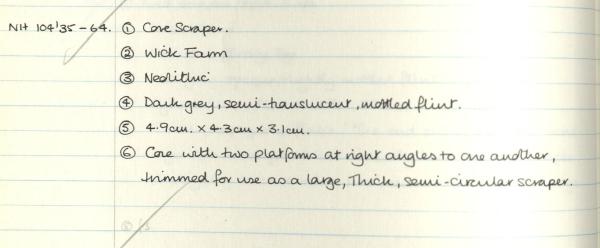 NH 104'35-64. ① Core Scraper.
② Wick Farm
③ Neolithic
④ Dark grey, semi-translucent, mottled flint.
⑤ 4.9cm. x 4.3cm x 3.1cm.
⑥ Core with two platforms at right angles to one another,
trimmed for use as a large, Thick, semi-circular scraper.